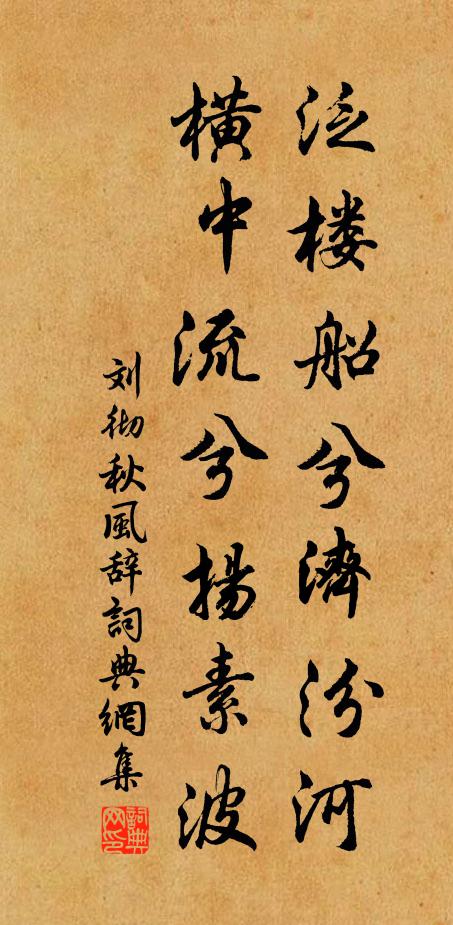 泛楼船兮濟汾河
橫中流兮揚素波
刘彻秋風辞詞典網集
詞典网印